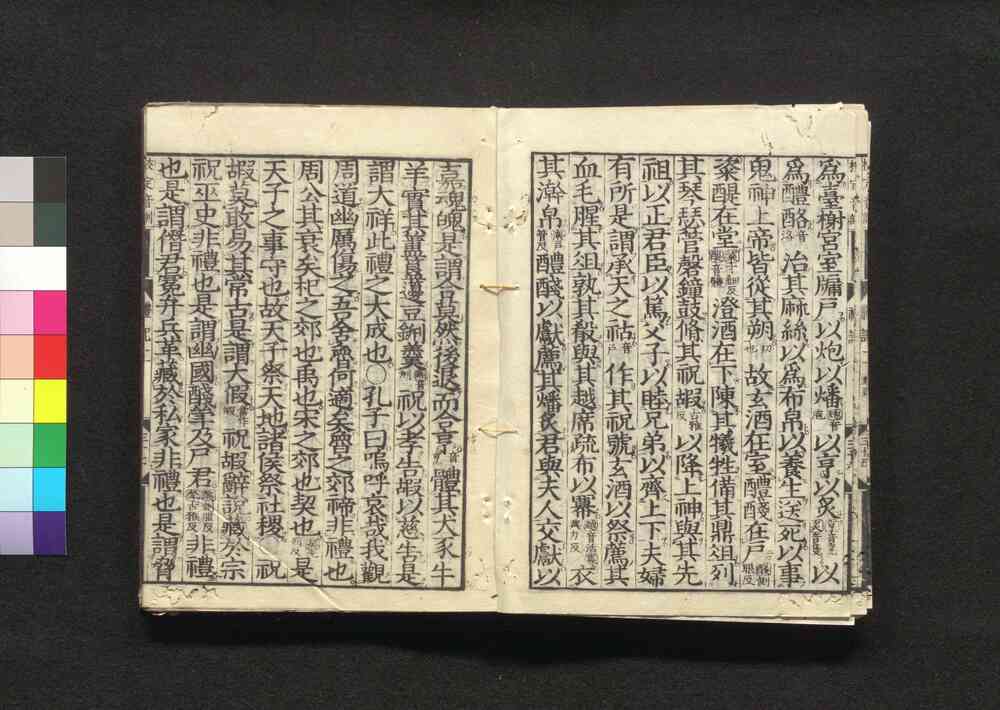 爲臺榭宮室牖戶以炮以燔以亨以炙以
爲醴酪音洛治其麻絲以爲布帛以養生送死以事
鬼神上帝皆從其朔故玄酒在室醴醆在戶
粢醍在堂澄酒在下陳其犧牲備其鼎俎列
其琴瑟管磬鐘鼓脩其祝嘏以降上神與其先
祖以正君臣以篤父子以睦兄弟以齊上下夫婦
有所是謂承天之祜作其祝號玄酒以祭薦其
血毛腥其俎孰其殽與其越席疏布以冪衣
其澣帛醴醆以獻薦其燔炙君與夫人交獻以
嘉魂魄是謂合莫然後退而合亨體其犬豕牛
羊實其簠簋籩豆鉶羹祝以孝告嘏以慈告是
謂大祥此禮之大成也○孔子曰嗚呼哀哉我觀
周道幽厲傷之吾舍魯何適矣魯之郊禘非禮也
周公其衰矣杞之郊也禹也宋之郊也契也是
天子之事守也故天子祭天地諸侯祭社稷祝
嘏莫敢易其常古是謂大假祝嘏辭說藏於宗
祝巫史非禮也是謂幽國醆斝及尸君非禮
也是謂僭君冕弁兵革藏於私家非禮也是謂脅